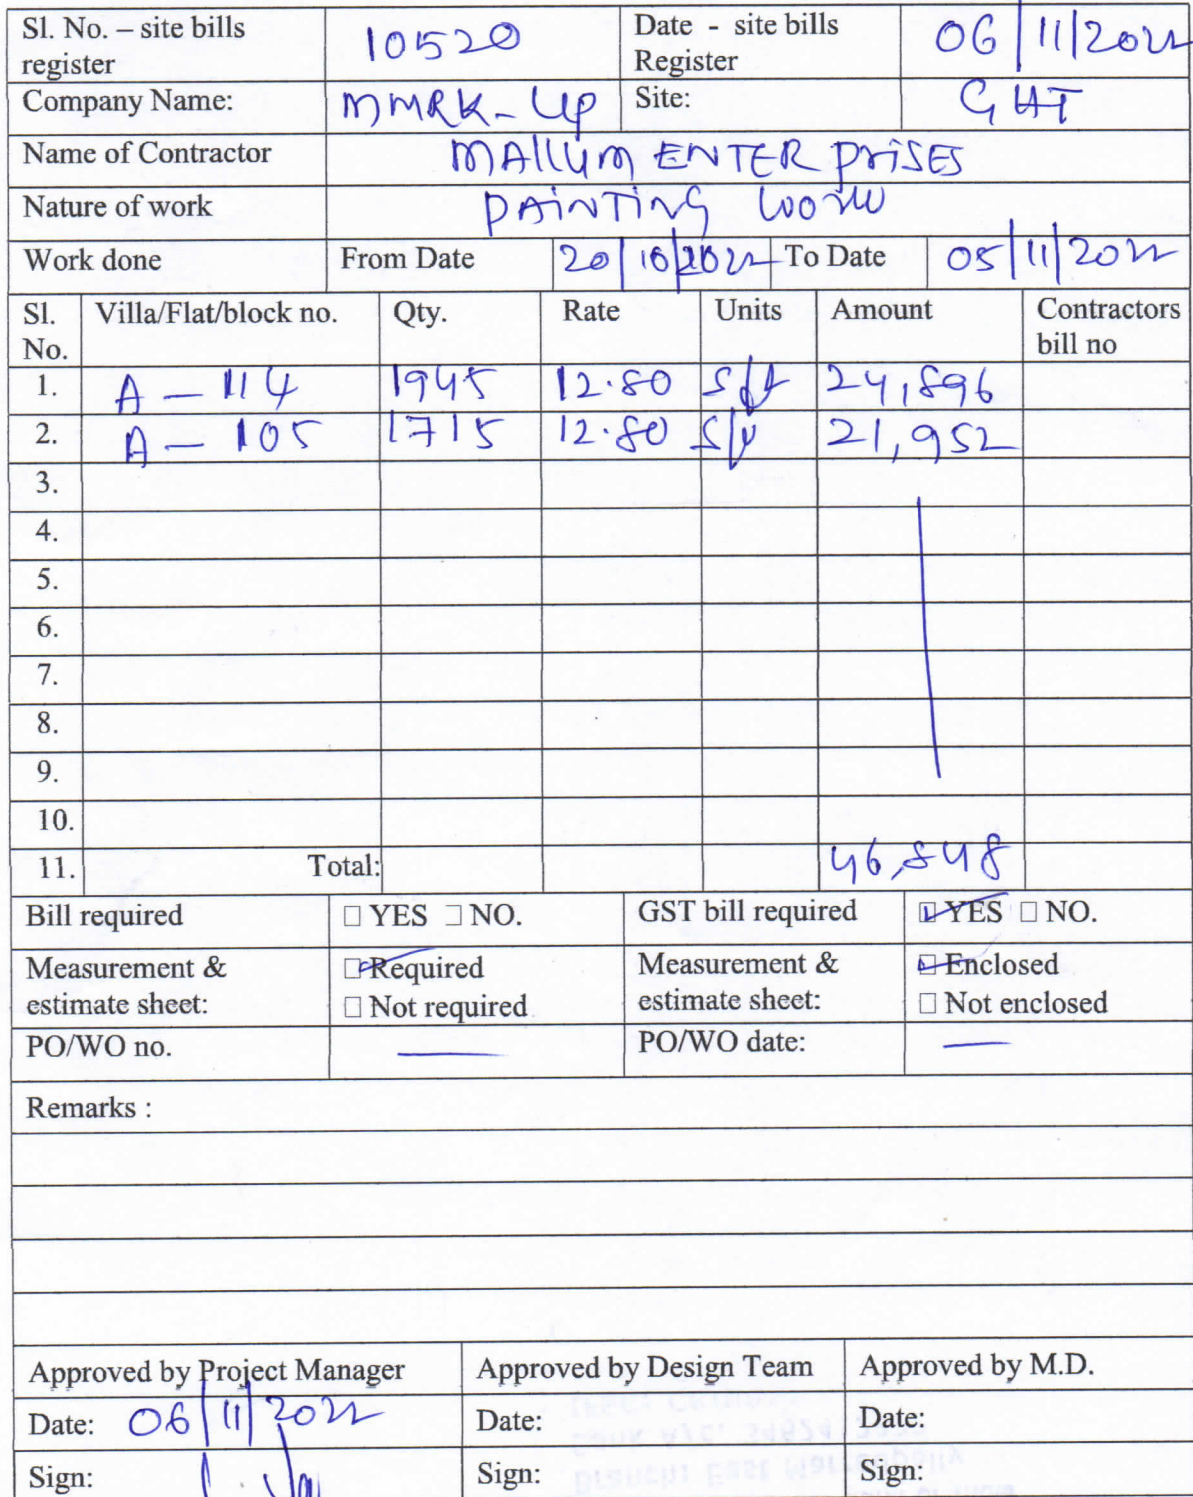 Sl. No. – site bills register 10520 Date - site bills Register 06/11/2022
Company Name: MMRK-UP Site: GHT
Name of Contractor MALLUM ENTERPRISES
Nature of work PAINTING WORK
Work done From Date 20/10/2022 To Date 05/11/2022
Sl. No. Villa/Flat/block no. Qty. Rate Units Amount Contractors bill no
1. A - 114 1945 12.80 sft 24,896
2. A - 105 1715 12.80 sft 21,952
3.
4.
5.
6.
7.
8.
9.
10.
11. Total: 46,848
Bill required ☐ YES ☐ NO. GST bill required ☑ YES ☐ NO.
Measurement & estimate sheet: ☑ Required Measurement & estimate sheet: ☑ Enclosed
☐ Not required ☐ Not enclosed
PO/WO no. — PO/WO date: —
Remarks :
Approved by Project Manager Approved by Design Team Approved by M.D.
Date: 06/11/2022 Date: Date:
Sign: Sign: Sign: